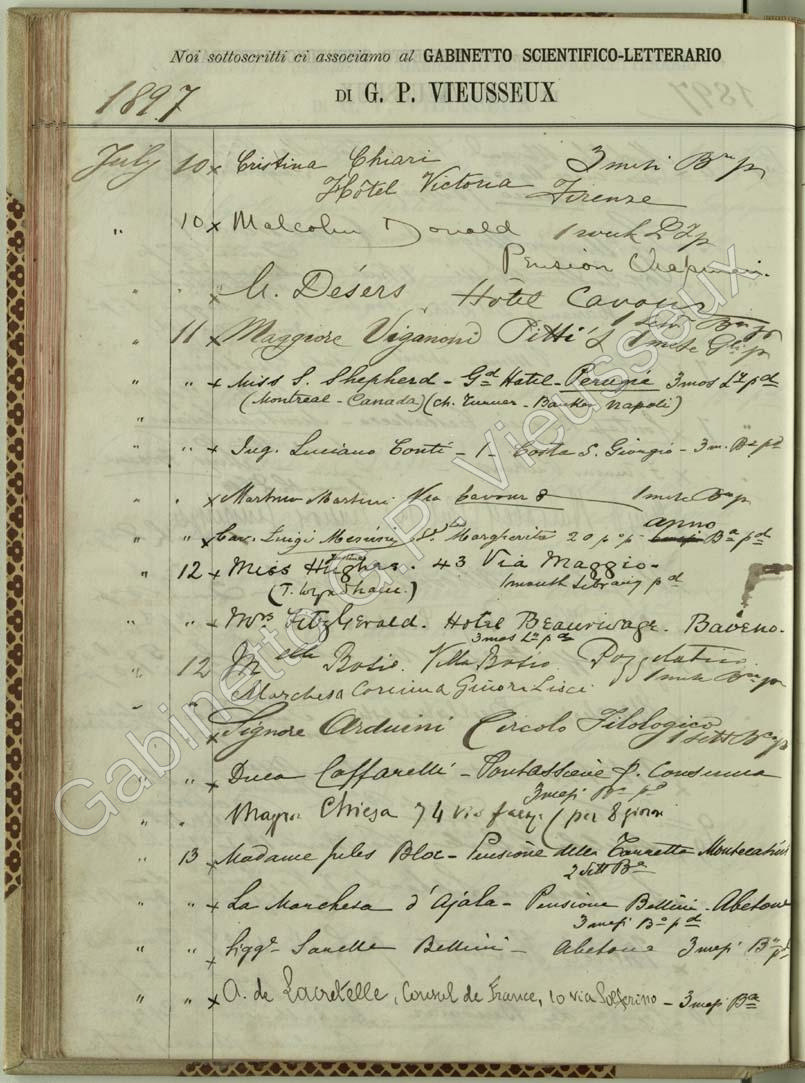 Noi sottoscritti ci associamo al GABINETTO SCIENTIFICO-LETTERARIO
1897
DI G. P. VIEUSSEUX
July 10 x Cristina Chiari 3 mesi Bne p
Hôtel Victoria Firenze
" 10 x Malcolm Donald 1 week
Pension Chapman.
" " x M. Désers Hôtel Cavour
" 11 x Maggiore Viganoni Pitti 1 mese
" " x Miss S. Shepherd - Gd Hotel - Perugia 3mos pd
(Montreal - Canada) (Ch. Turner - Banker Napoli)
" " x Ing. Luciano Conti - 1 - Costa S. Giorgio - 3 m. Ba pd
" " x Martini Via Cavour 8 1 mese
" " x Cav. Luigi Sta Margherita 20 po po anno Ba pd
" 12 x Miss Hughes. 43 Via Maggio -
(T. Wyndham.) 1 month Library pd
" " x Mrs FitzGerald. Hotel Beaurivage. Baveno.
3mos pd
" 12 Mlle Bosio. Villa Bosio. Poggolatico
1 mese
" " Marchesa Corinna Ginori Lisci
x Signore Arduini Circolo Filologico
1 sett
" " x Duca Caffarelli - Pontassieve p. Consuma
3 mesi pd
" " Chiesa 74 via (per 8 giorni
" 13 x Madame Jules Bloc - Pensione della Torretta Montecatini
2 sett Ba
" " x La Marchesa d'Ajala - Pensione Bellini - Abetone
3 mesi Ba pd
" " x Sigg. Bellini - Abetone 3 mesi pd
" " x A. de Lacretelle, Consul de France, 10 via Solferino - 3 mesi Ba
Gabinetto G.P. Vieusseux